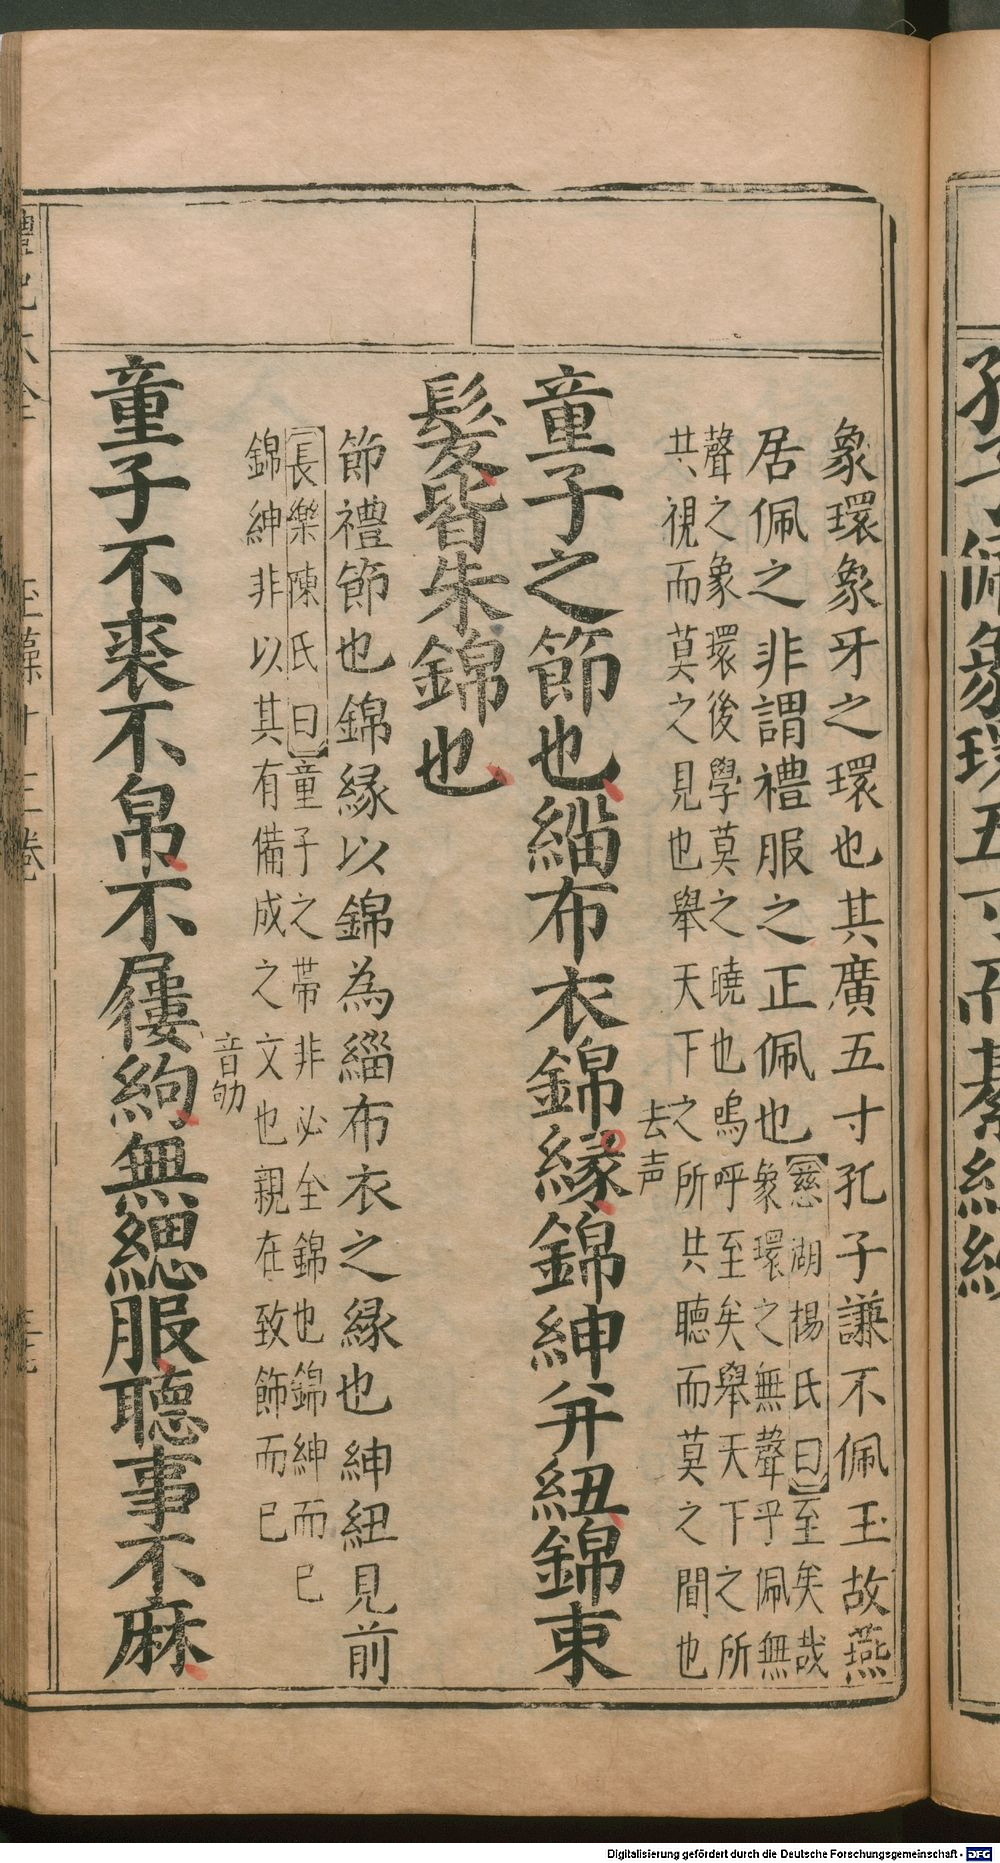 象環象牙之環也其廣五寸孔子謙不佩玉故燕
居佩之非謂禮服之正佩也
慈湖楊氏曰至矣哉
象環之無聲乎佩無
聲之象環後學莫之曉也嗚呼至矣舉天下之所
共視而莫之見也舉天下之所共聽而莫之聞也
童子之節也緇布衣錦緣錦紳并紐錦束
去声
髮皆朱錦也
節禮節也錦緣以錦為緇布衣之緣也紳紐見前
長樂陳氏曰童子之帶非必全錦也錦紳而已
錦紳非以其有備成之文也親在致飾而已
童子不裘不帛不屨絇無緦服聽事不麻
音劬
玉藻十三卷
孔子佩象環五寸而綦組綬
Digitalisierung gefördert durch die Deutsche Forschungsgemeinschaft - DFG